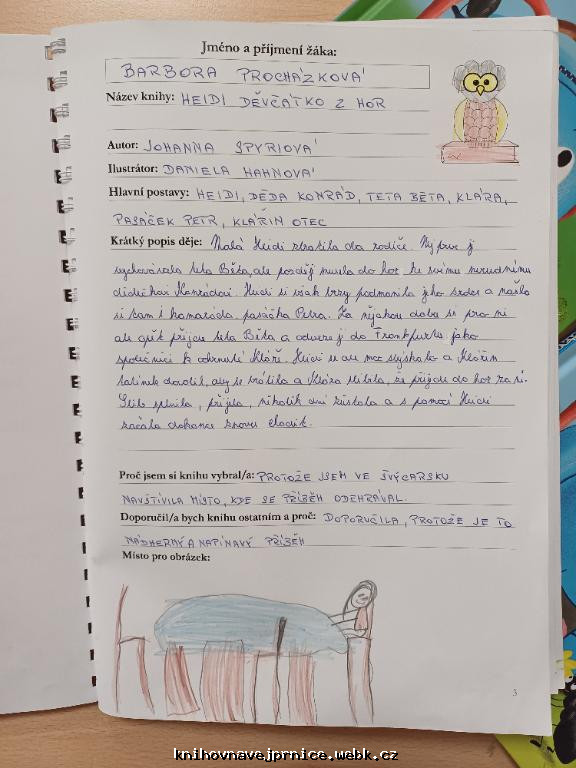 Jméno a příjmení žáka:
BARBORA PROCHÁZKOVÁ
Název knihy: HEIDI DĚVČÁTKO Z HOR
Autor: JOHANNA SPYRIOVÁ
Ilustrátor: DANIELA HAHNOVÁ
Hlavní postavy: HEIDI, DĚDA KONRÁD, TETA BĚTA, KLÁRA,
PASÁČEK PETR, KLÁŘIN OTEC
Krátký popis děje: Malá Heidi ztratila oba rodiče. Nejprve ji
vychovávala teta Běta, ale později musela do hor, ke svému nerudnému
dědečkovi Konrádovi. Heidi si však brzy podmanila jeho srdce a našla
si tam i kamaráda pasáčka Petra. Za nějakou dobu se pro ni
ale opět přijede teta Běta a odveze ji do Frankfurtu jako
společnici k ochrnuté Kláře. Heidi se ale moc stýskalo a Klářin
tatínek dovolil, aby se vrátila a Klára slíbila, že přijede do hor za ní.
Slib splnila, přijela, několik dní zůstala a s pomocí Heidi
začala dokonce znovu chodit.
Proč jsem si knihu vybral/a: PROTOŽE JSEM VE ŠVÝCARSKU
NAVŠTÍVILA MÍSTO, KDE SE PŘÍBĚH ODEHRÁVAL.
Doporučil/a bych knihu ostatním a proč: DOPORUČILA, PROTOŽE JE TO
NÁDHERNÝ A NAPÍNAVÝ PŘÍBĚH
Místo pro obrázek:
3
knihovnavejprnice.webk.cz